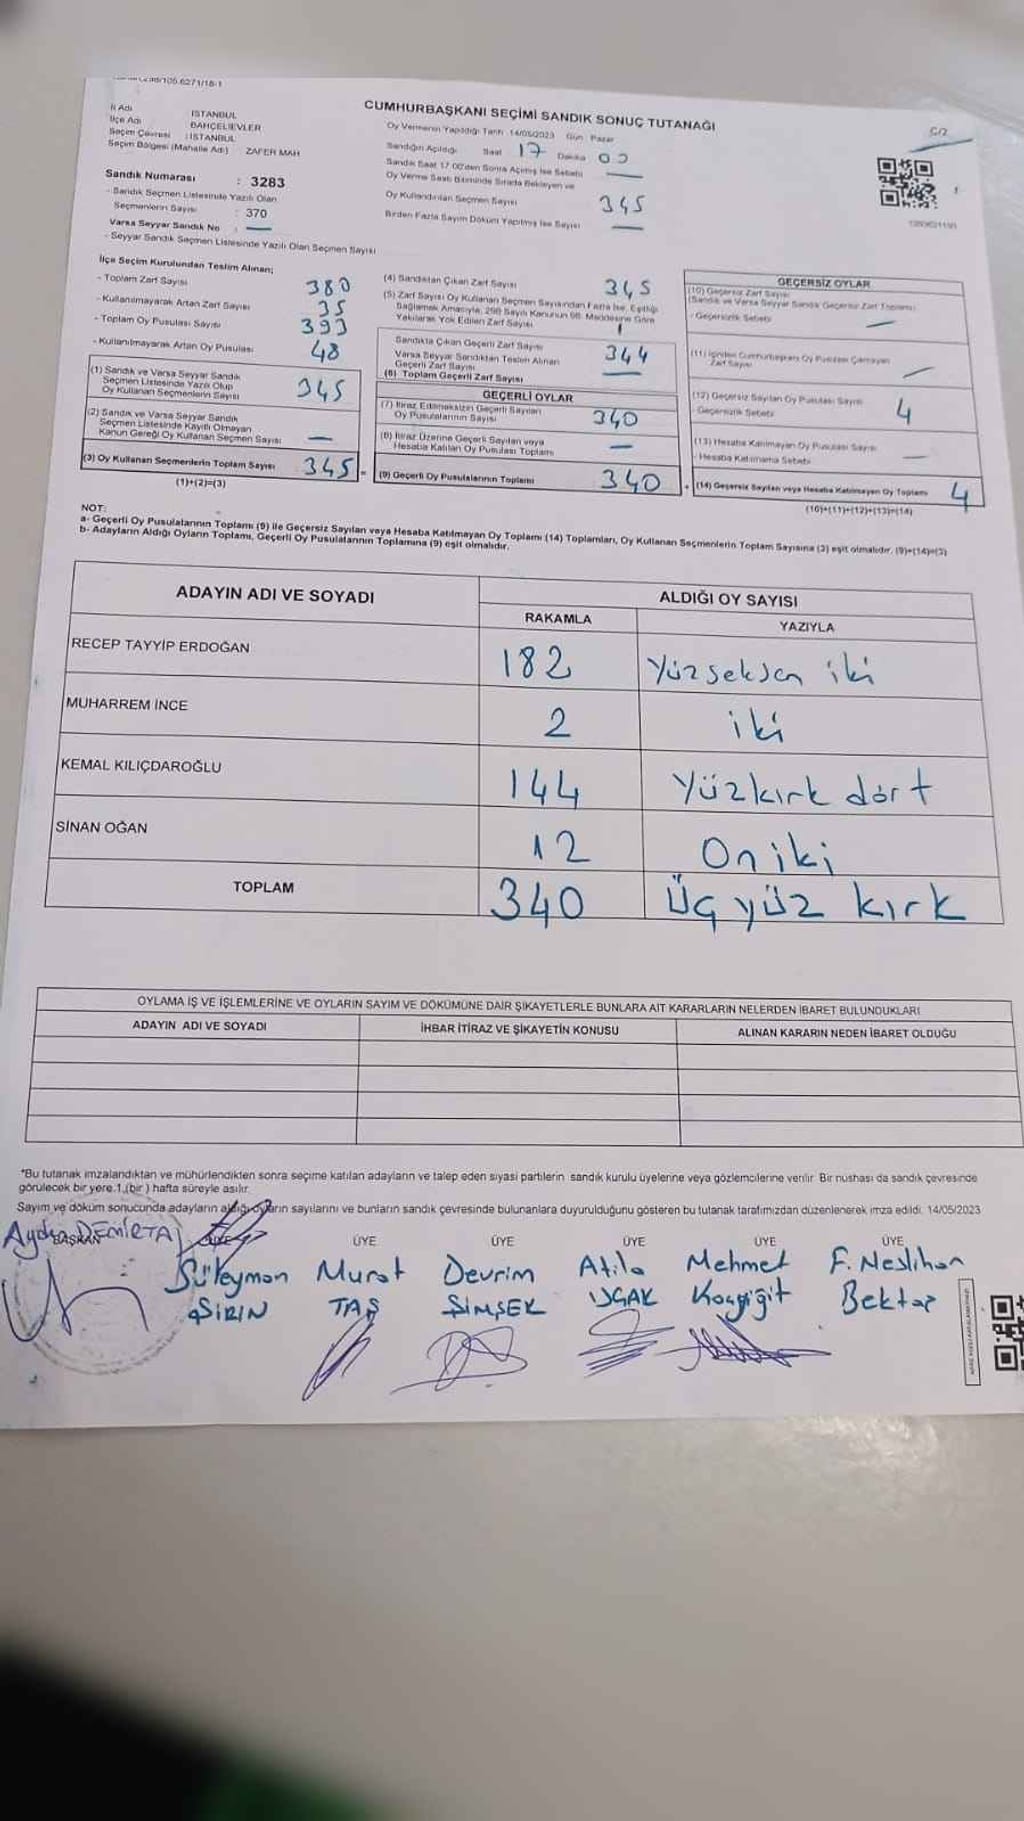 CUMHURBAŞKANI SEÇİMİ SANDIK SONUÇ TUTANAĞI
İl Adı İSTANBUL
İlçe Adı BAHÇELİEVLER
Seçim Çevresi : İSTANBUL
Seçim Bölgesi (Mahalle Adı) : ZAFER MAH
Sandık Numarası : 3283
- Sandık Seçmen Listesinde Yazılı Olan
Seçmenlerin Sayısı : 370
Varsa Seyyar Sandık No : —
- Seyyar Sandık Seçmen Listesinde Yazılı Olan Seçmen Sayısı
Oy Vermenin Yapıldığı Tarih 14/05/2023 Gün Pazar
Sandığın Açıldığı Saat 17 Dakika 00
Sandık Saat 17.00'den Sonra Açılmış İse Sebebi —
Oy Verme Saati Bitiminde Sırada Bekleyen ve
Oy Kullandırılan Seçmen Sayısı 345
Birden Fazla Sayım Döküm Yapılmış İse Sayısı —
C/2
İlçe Seçim Kurulundan Teslim Alınan;
- Toplam Zarf Sayısı 380
- Kullanılmayarak Artan Zarf Sayısı 35
- Toplam Oy Pusulası Sayısı 393
- Kullanılmayarak Artan Oy Pusulası 48
(1) Sandık ve Varsa Seyyar Sandık
Seçmen Listesinde Yazılı Olup
Oy Kullanan Seçmenlerin Sayısı 345
(2) Sandık ve Varsa Seyyar Sandık
Seçmen Listesinde Kayıtlı Olmayan
Kanun Gereği Oy Kullanan Seçmen Sayısı —
(3) Oy Kullanan Seçmenlerin Toplam Sayısı 345 =
(1)+(2)=(3)
(4) Sandıktan Çıkan Zarf Sayısı 345
(5) Zarf Sayısı Oy Kullanan Seçmen Sayısından Fazla İse, Eşitliği
Sağlamak Amacıyla, 298 Sayılı Kanunun 98. Maddesine Göre
Yakılarak Yok Edilen Zarf Sayısı 1
Sandıkta Çıkan Geçerli Zarf Sayısı 344
Varsa Seyyar Sandıktan Teslim Alınan
Geçerli Zarf Sayısı —
(6) Toplam Geçerli Zarf Sayısı
GEÇERLİ OYLAR
(7) İtiraz Edilmeksizin Geçerli Sayılan
Oy Pusulalarının Sayısı 340
(8) İtiraz Üzerine Geçerli Sayılan veya
Hesaba Katılan Oy Pusulası Toplamı —
(9) Geçerli Oy Pusulalarının Toplamı 340 +
GEÇERSİZ OYLAR
(10) Geçersiz Zarf Sayısı
(Sandık ve Varsa Seyyar Sandık Geçersiz Zarf Toplamı)
- Geçersizlik Sebebi —
(11) İçinden Cumhurbaşkanı Oy Pusulası Çıkmayan
Zarf Sayısı —
(12) Geçersiz Sayılan Oy Pusulası Sayısı 4
- Geçersizlik Sebebi
(13) Hesaba Katılmayan Oy Pusulası Sayısı —
- Hesaba Katılmama Sebebi
(14) Geçersiz Sayılan veya Hesaba Katılmayan Oy Toplamı 4
(10)+(11)+(12)+(13)=(14)
NOT:
a- Geçerli Oy Pusulalarının Toplamı (9) ile Geçersiz Sayılan veya Hesaba Katılmayan Oy Toplamı (14) Toplamları, Oy Kullanan Seçmenlerin Toplam Sayısına (3) eşit olmalıdır. (9)+(14)=(3)
b- Adayların Aldığı Oyların Toplamı, Geçerli Oy Pusulalarının Toplamına (9) eşit olmalıdır.
ADAYIN ADI VE SOYADI ALDIĞI OY SAYISI
RAKAMLA YAZIYLA
RECEP TAYYİP ERDOĞAN 182 Yüzseksen iki
MUHARREM İNCE 2 iki
KEMAL KILIÇDAROĞLU 144 Yüzkırk dört
SİNAN OĞAN 12 On iki
TOPLAM 340 Üçyüz kırk
OYLAMA İŞ VE İŞLEMLERİNE VE OYLARIN SAYIM VE DÖKÜMÜNE DAİR ŞİKAYETLERLE BUNLARA AİT KARARLARIN NELERDEN İBARET BULUNDUKLARI
ADAYIN ADI VE SOYADI İHBAR İTİRAZ VE ŞİKAYETİN KONUSU ALINAN KARARIN NEDEN İBARET OLDUĞU
*Bu tutanak imzalandıktan ve mühürlendikten sonra seçime katılan adayların ve talep eden siyasi partilerin sandık kurulu üyelerine veya gözlemcilerine verilir. Bir nushası da sandık çevresinde
görülecek bir yere 1 (bir ) hafta süreyle asılır.
Sayım ve döküm sonucunda adayların aldığı oyların sayılarını ve bunların sandık çevresinde bulunanlara duyurulduğunu gösteren bu tutanak tarafımızdan düzenlenerek imza edildi. 14/05/2023
BAŞKAN ÜYE ÜYE ÜYE ÜYE ÜYE
Süleyman Murat Devrim Atila Mehmet F. Neslihan
ŞİRİN TAŞ ŞİMŞEK UÇAK Koçyiğit Bektaş